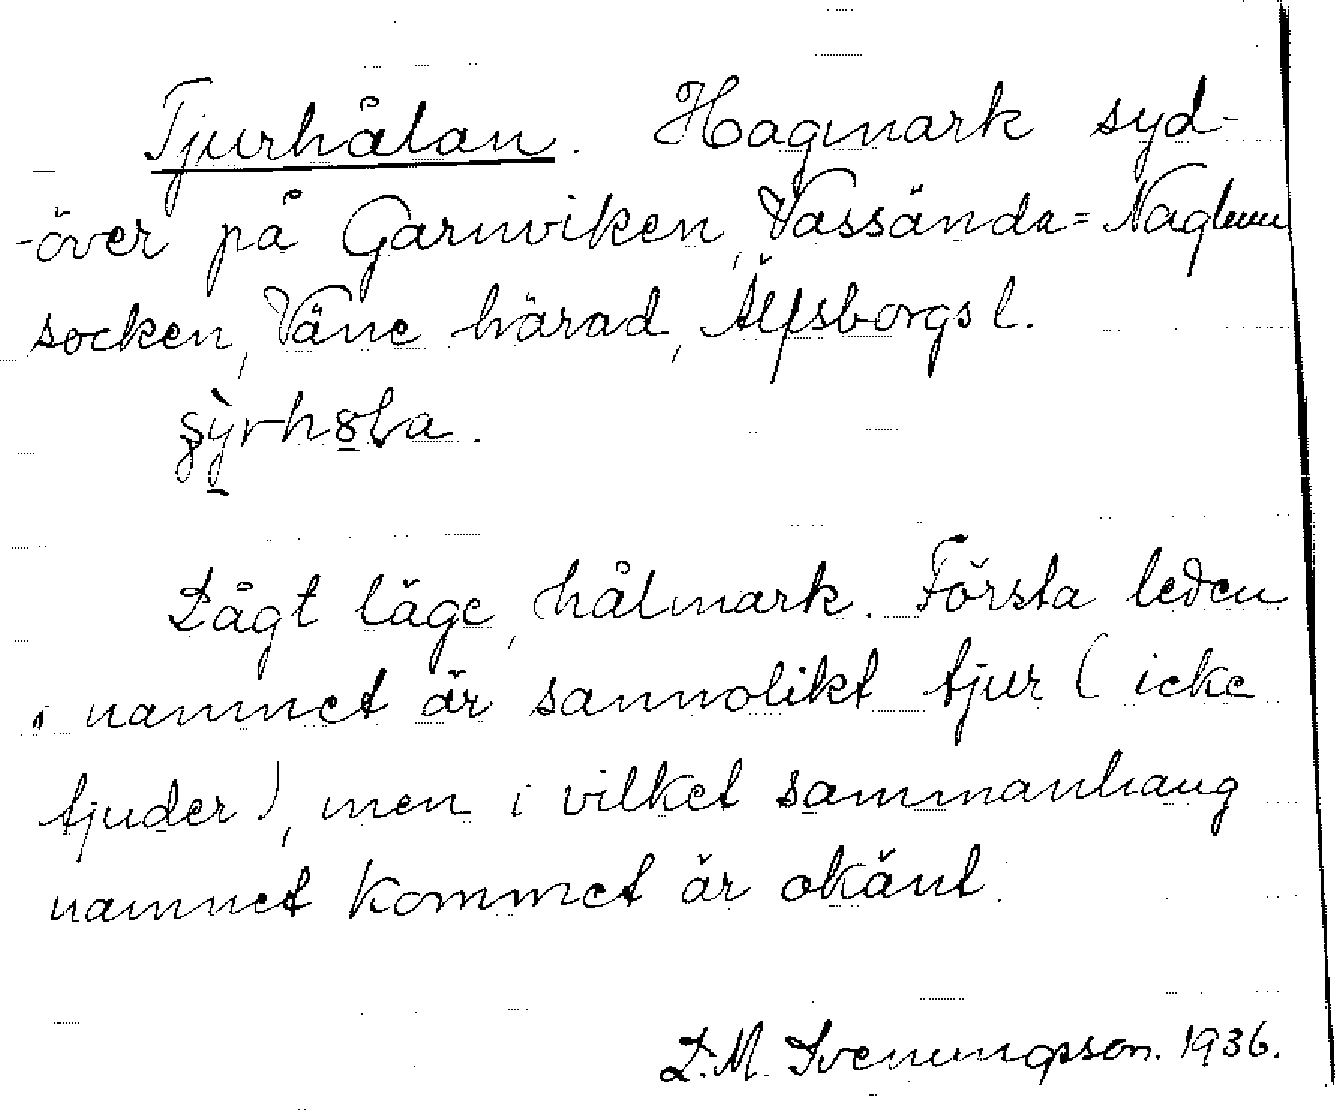 Tjurhålan. Hagmark syd-
-över på Garnviken, Vassända=Naglum
socken, Väne härad, Älfsborgs l.
Lågt läge, hålmark. Första leden
i namnet är sannolikt tjur (icke
tjuder), men i vilket sammanhang
namnet kommet är okänt.
L.M. Svenungsson. 1936.